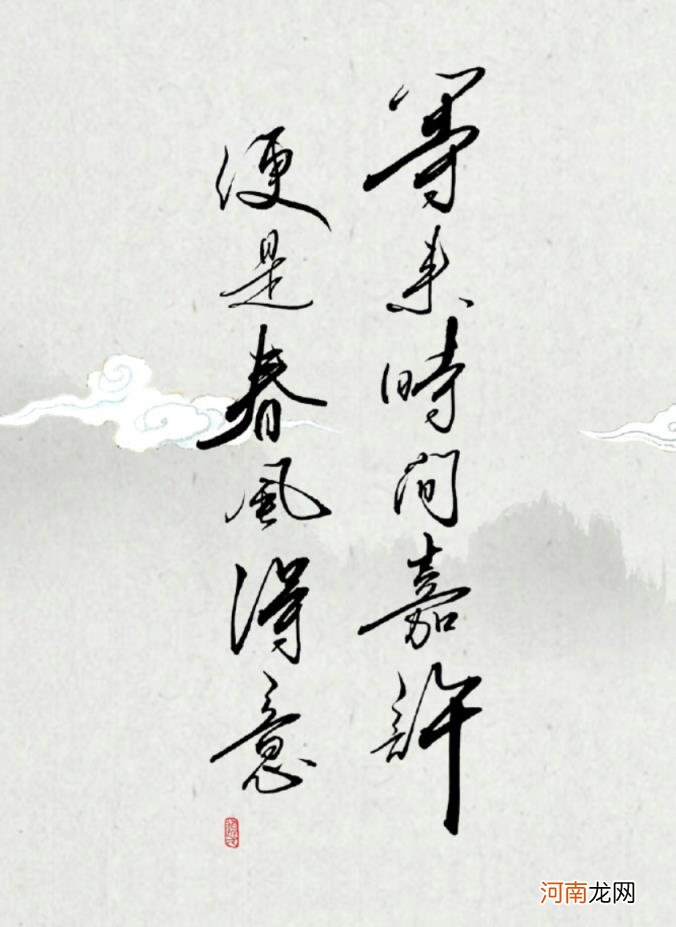 等来時间嘉許
便是春風得意
河南龙网